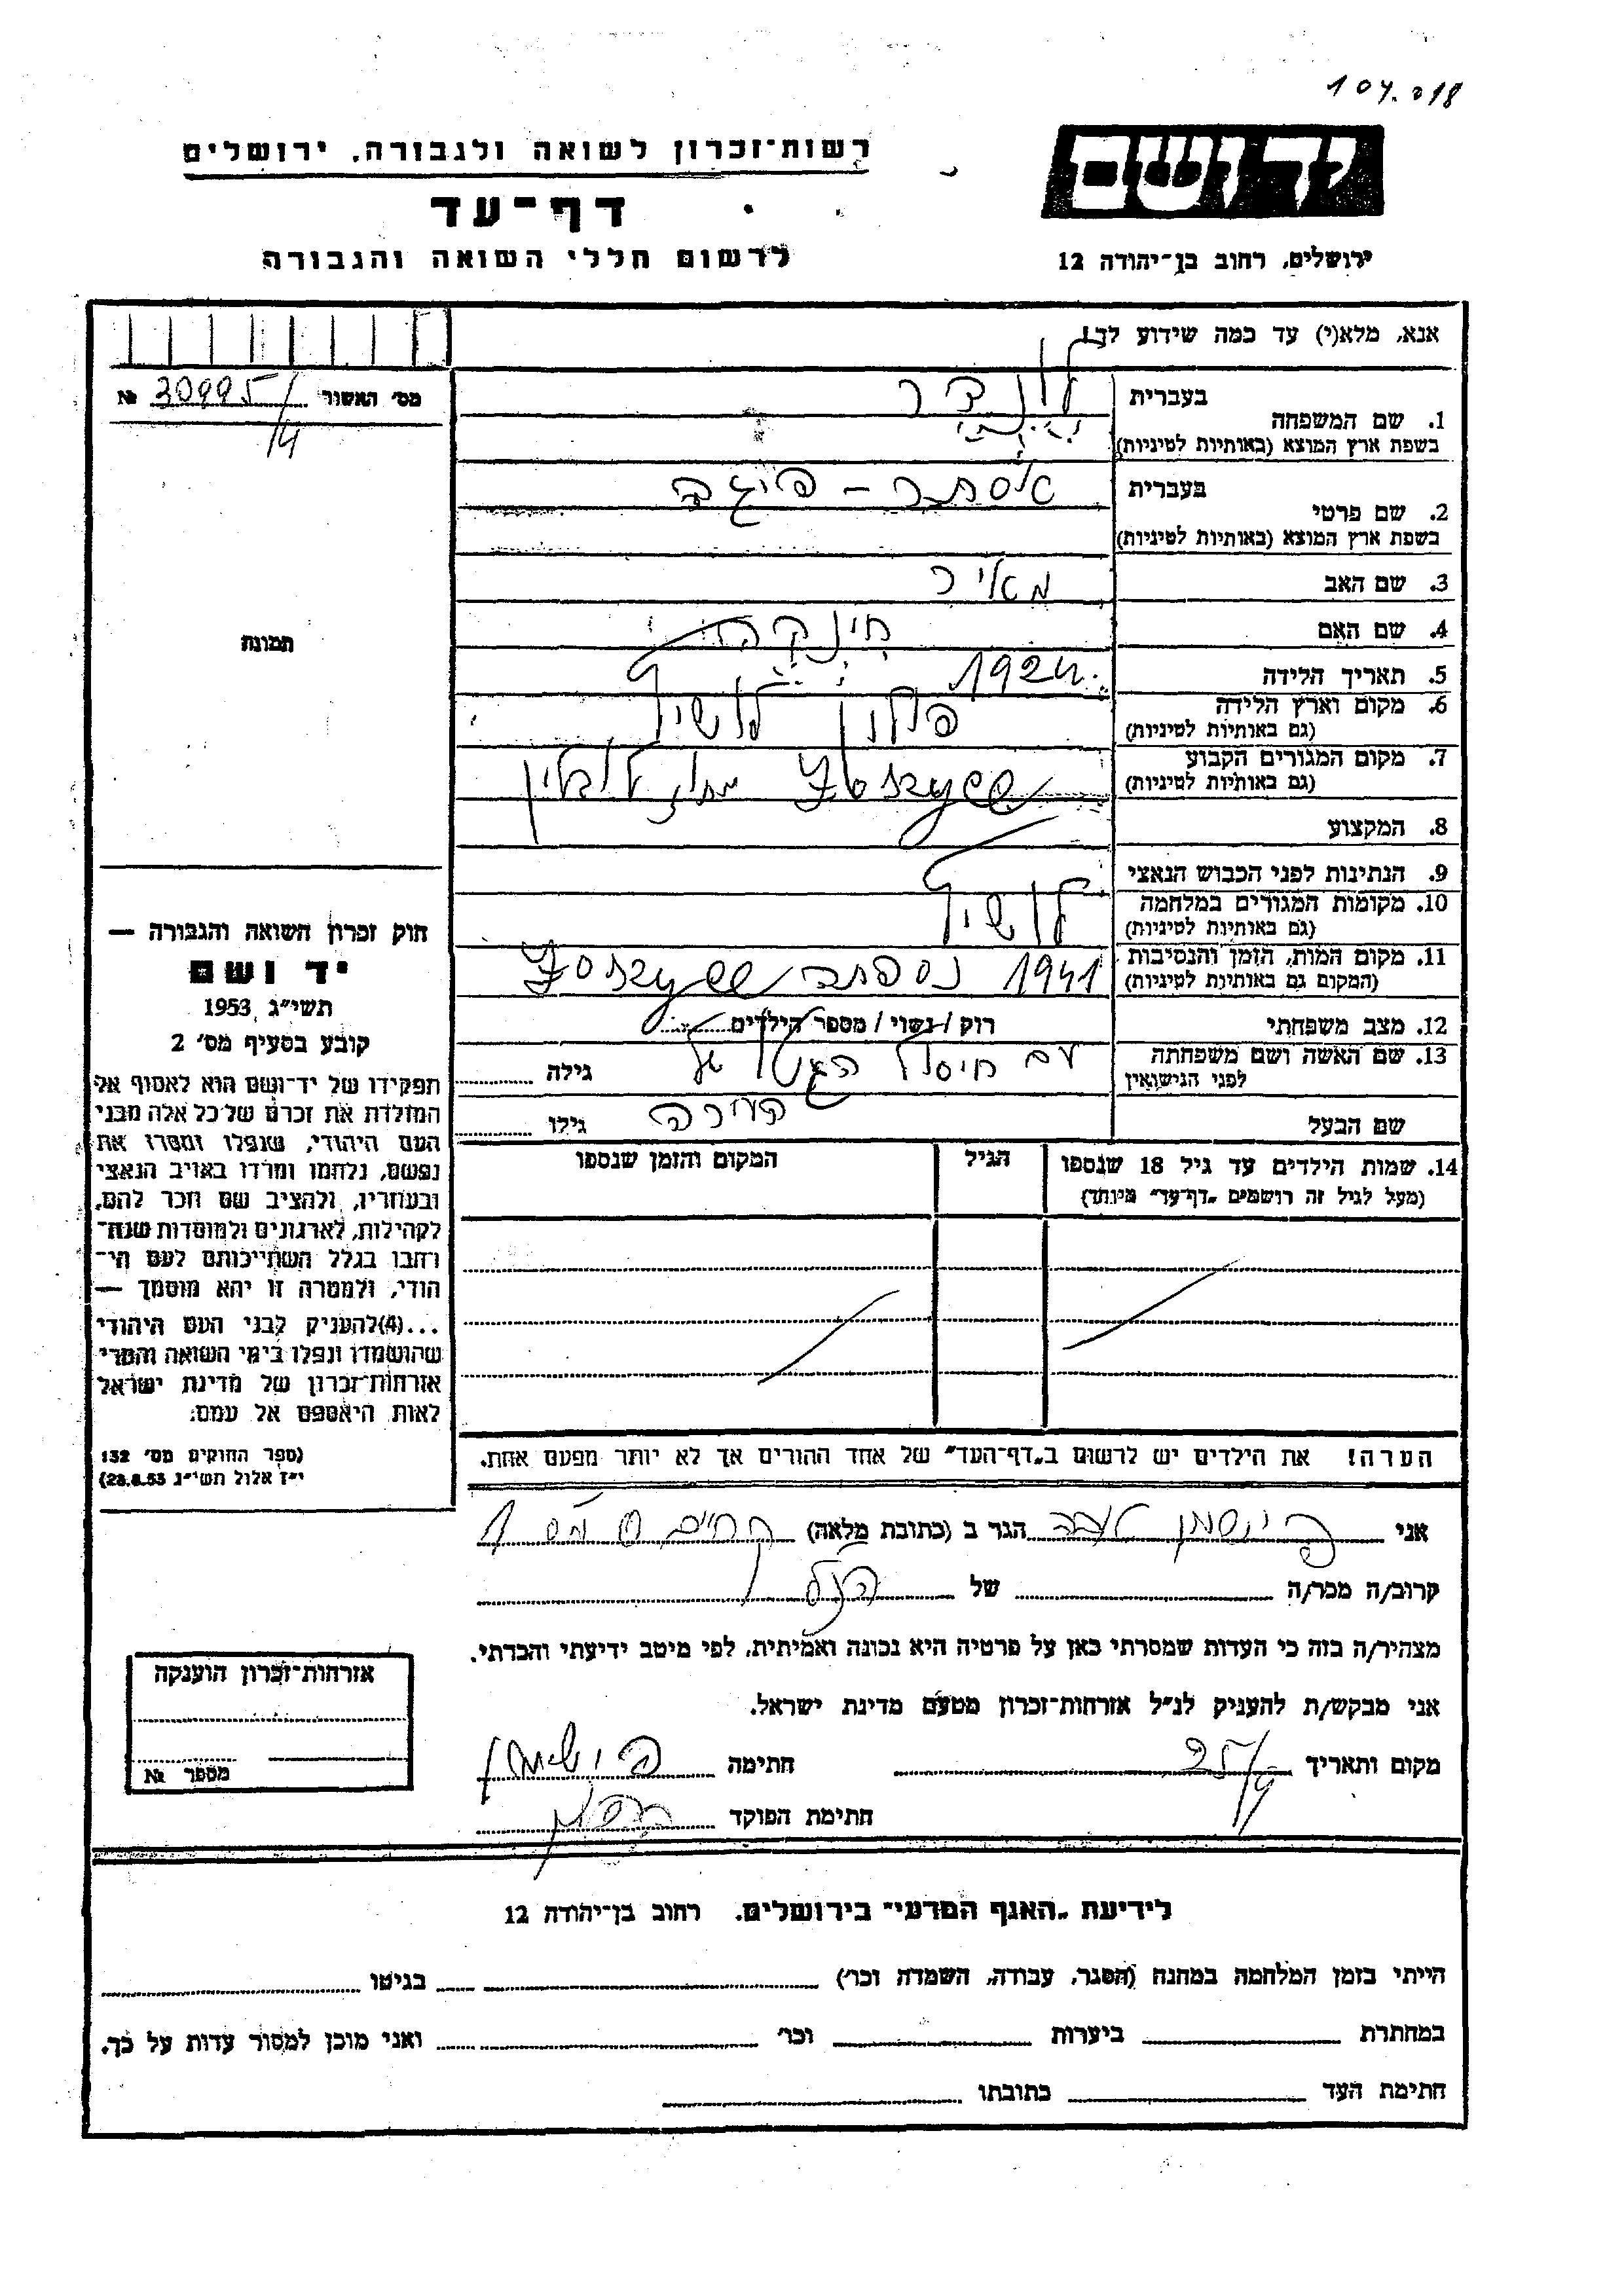 104.218
רשות־זכרון לשואה ולגבורה, ירושלים
יד ושם
דף־עד
לרשום חללי השואה והגבורה
ירושלים, רחוב בן־יהודה 12
אנא, מלא(י) עד כמה שידוע לך!
מס׳ האשור № 30995/4
תמונה
בעברית לנדר
1. שם המשפחה
בשפת ארץ המוצא (באותיות לטיניות)
בעברית אסתר – פיגה
2. שם פרטי
בשפת ארץ המוצא (באותיות לטיניות)
3. שם האב מאיר
4. שם האם חינקה
5. תאריך הלידה 1924
6. מקום וארץ הלידה פולין לושיץ
(גם באותיות לטיניות)
7. מקום המגורים הקבוע מחוז לובלין
(גם באותיות לטיניות)
8. המקצוע
9. הנתינות לפני הכבוש הנאצי
10. מקומות המגורים במלחמה לושיץ
(גם באותיות לטיניות)
11. מקום המות, הזמן והנסיבות 1941 נספתה
(המקום גם באותיות לטיניות)
12. מצב משפחתי רוק / נשוי / מספר הילדים
13. שם האשה ושם משפחתה עם חיסול הגטו של גילה
לפני הנישואין
שם הבעל העירה גילו
14. שמות הילדים עד גיל 18 שנספו הגיל המקום והזמן שנספו
(מעל לגיל זה רושמים „דף־עד״ מיוחד)
הערה! את הילדים יש לרשום ב„דף־העד״ של אחד ההורים אך לא יותר מפעם אחת.
חוק זכרון השואה והגבורה —
יד ושם
תשי״ג, 1953
קובע בסעיף מס׳ 2
תפקידו של יד־ושם הוא לאסוף אל
המולדת את זכרם של כל אלה מבני
העם היהודי, שנפלו ומסרו את
נפשם, נלחמו ומרדו באויב הנאצי
ובעוזריו, ולהציב שם וזכר להם,
לקהילות, לארגונים ולמוסדות שנח־
רבו בגלל השתייכותם לעם הי־
הודי, ולמטרה זו יהא מוסמך —
...(4)להעניק לבני העם היהודי
שהושמדו ונפלו בימי השואה והמרי
אזרחות־זכרון של מדינת ישראל
לאות היאספם אל עמם:
(ספר החוקים מס׳ 132
י״ז אלול תשי״ג 28.8.53)
אני פישמן הגר ב (כתובת מלאה)
קרוב/ה מכר/ה של הנ״ל
מצהיר/ה בזה כי העדות שמסרתי כאן על פרטיה היא נכונה ואמיתית, לפי מיטב ידיעתי והכרתי.
אני מבקש/ת להעניק לנ״ל אזרחות־זכרון מטעם מדינת ישראל.
מקום ותאריך 25/4 חתימה פישמן
חתימת הפוקד
אזרחות־זכרון הוענקה
מספר №
לידיעת „האגף המדעי״ בירושלים, רחוב בן־יהודה 12
הייתי בזמן המלחמה במחנה (הסגר, עבודה, השמדה וכו׳) בגיטו
במחתרת ביערות וכו׳ ואני מוכן למסור עדות על כך.
חתימת העד כתובתו